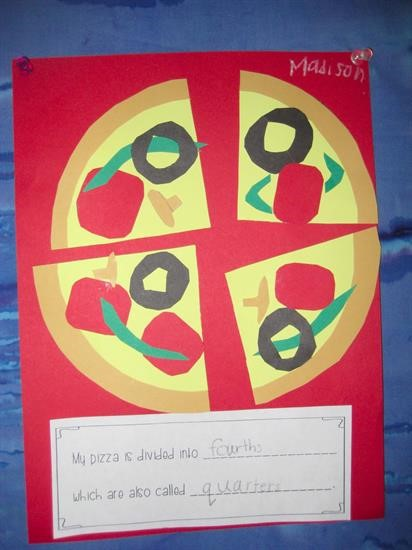 Madison
My pizza is divided into fourths
which are also called quarters.